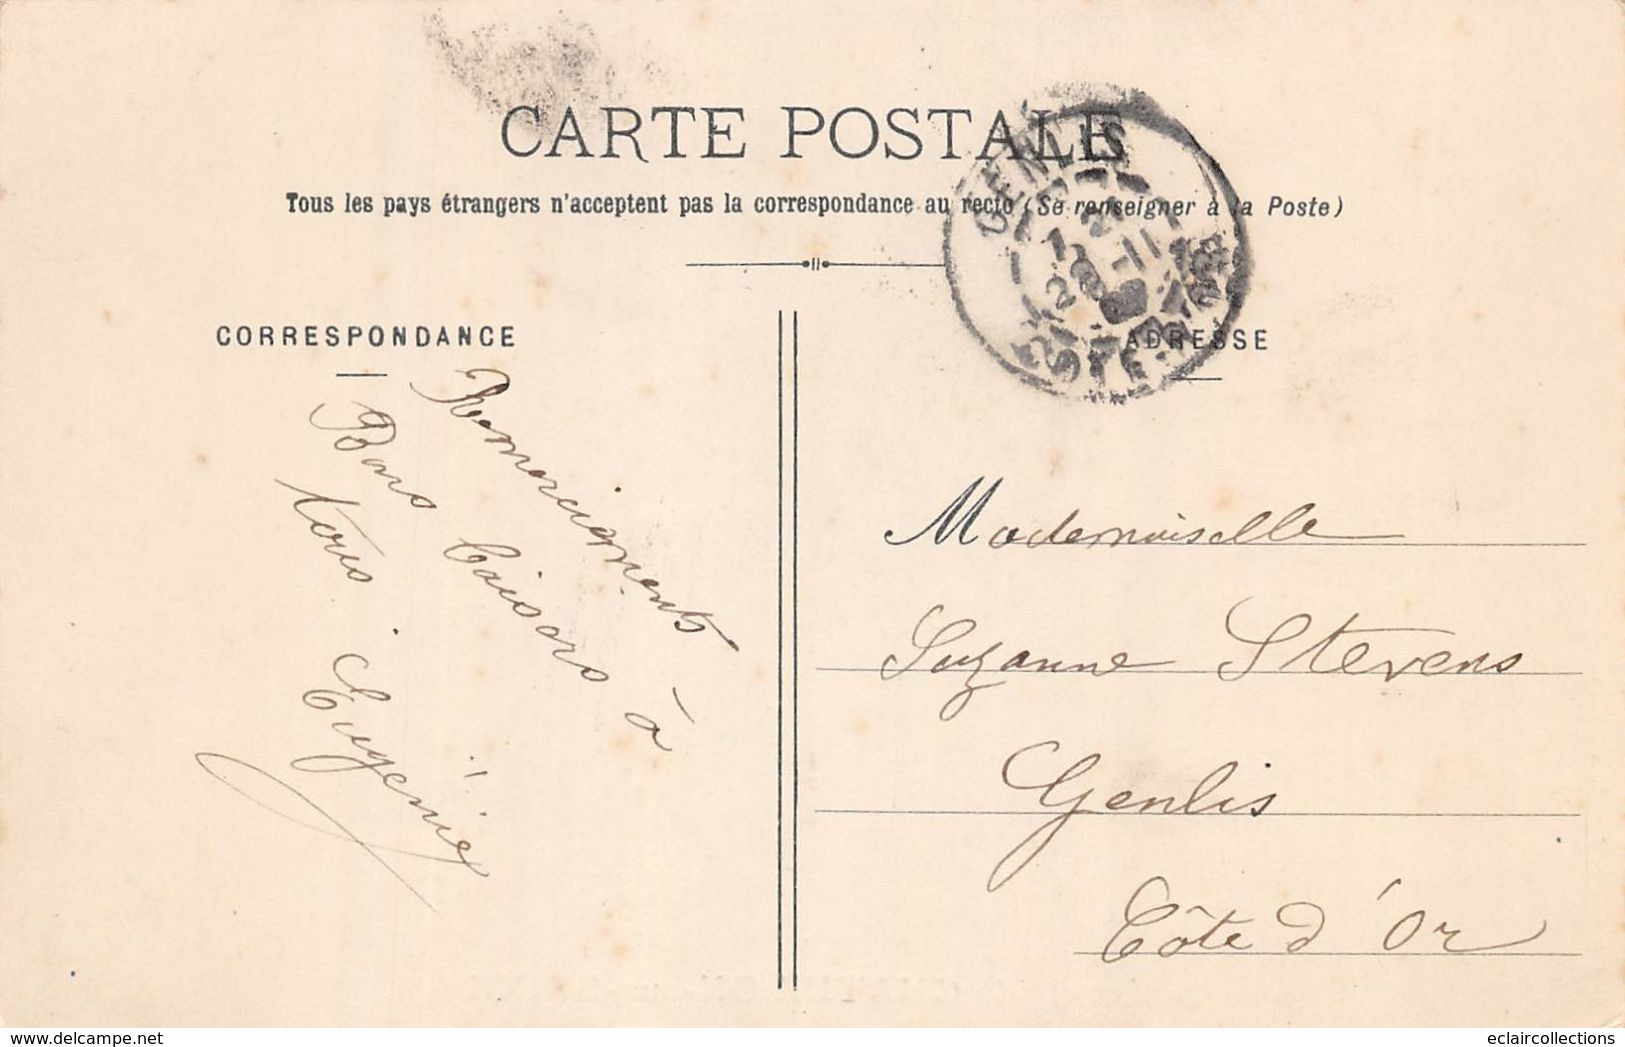 CARTE POSTALE
Tous les pays étrangers n'acceptent pas la correspondance au recto (Se renseigner à la Poste)
CORRESPONDANCE
ADRESSE
GENLIS
COTE D'OR
Remerciements
Bons baisers à
tous
Eugénie
Mademoiselle
Suzanne Stevens
Genlis
Côte d'Or
www.delcampe.net
eclaircollections